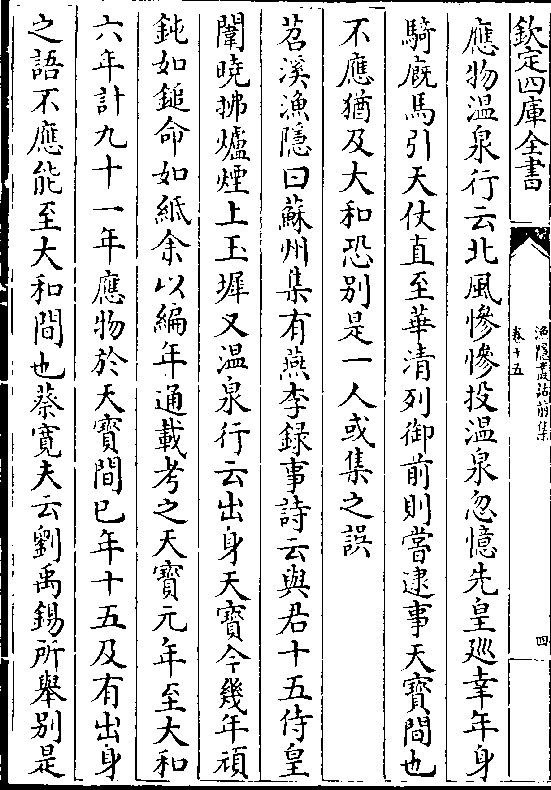 欽定四庫全書
漁隱叢話前集
卷十五
四
應物溫泉行云北風慘慘投溫泉忽憶先皇廵幸年身
騎廐馬引天仗直至華清列御前則嘗逮事天寶間也
不應猶及大和恐别是一人或集之誤
苕溪漁隱曰蘇州集有燕李録事詩云與君十五侍皇
闈曉拂爐煙上玉墀又溫泉行云出身天寶今幾年頑
鈍如鎚命如紙余以編年通載考之天寶元年至大和
六年計九十一年應物於天寶間已年十五及有出身
之語不應能至大和間也蔡寛夫云劉禹錫所舉别是